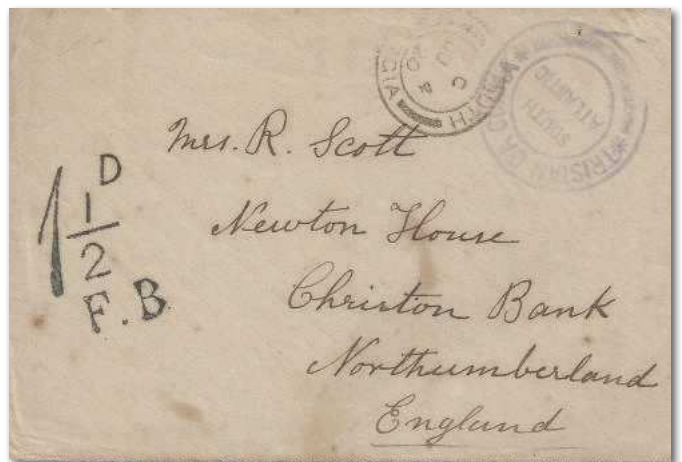 TRISTAN DA CUNHA
SOUTH
ATLANTIC
Mrs. R. Scott
Newton House
Christon Bank
Northumberland
England
1 1/2 D
F.B.